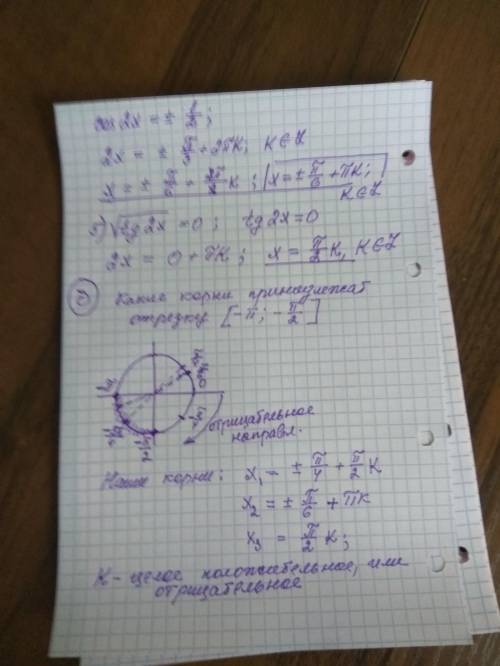 cos 2x = ± 1/2;
2x = ± π/3 + 2πK; K∈Z
x = ± π/6 + 2π/2 K; x = ± π/6 + πK;
K∈Z
3) √tg 2x = 0; tg 2x = 0
2x = 0 + πK; x = π/2 K, K∈Z
② Какие корни принадлежат
отрезку [-π; -π/2]
отрицательное
направл.
Наши корни: x₁ = ± π/4 + π/2 K
x₂ = ± π/6 + πK
x₃ = π/2 K;
K - целое положительное, или
отрицательное